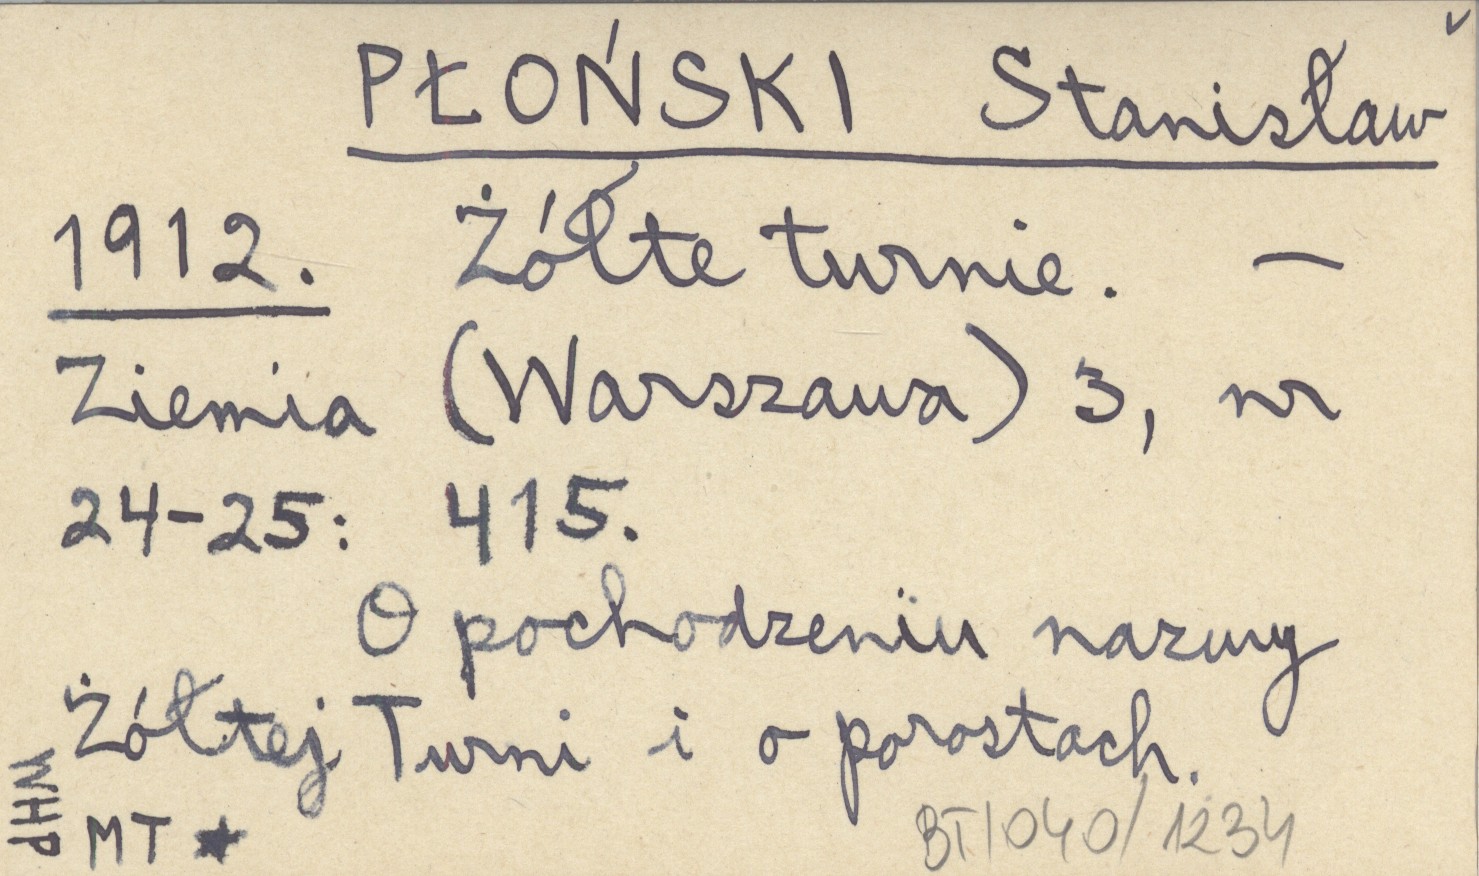 PŁOŃSKI Stanisław
1912. Żółte turnie. —
Ziemia (Warszawa) 3, nr
24-25: 415.
O pochodzeniu nazwy
Żółtej Turni i o porostach.
WHP
MT ★
BT/040/1234